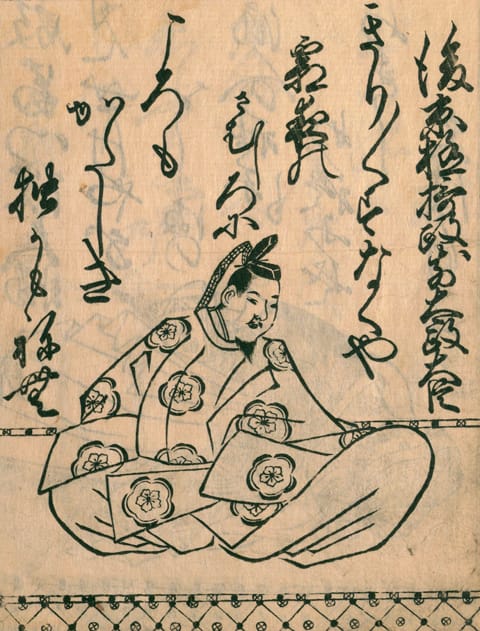 後京極摂政前太政大臣
きり〳〵すなくや
霜夜の
さむしろに
ころも
かたしき
独かもねむ